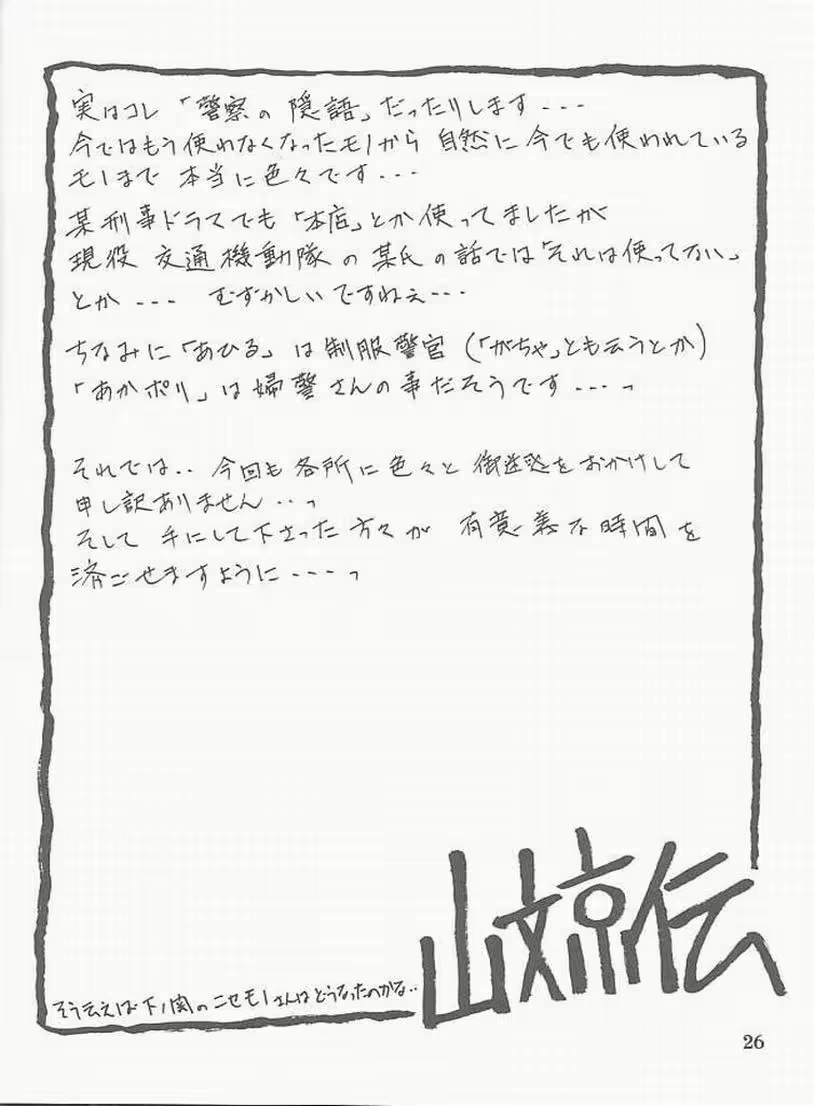 実はコレ「警察の隠語」だったりします・・・
今ではもう使われなくなったモノから自然に今でも使われている
モノまで本当に色々です・・・
某刑事ドラマでも「本店」とか使ってましたが
現役交通機動隊の某氏の話では「それは使ってない」
とか・・・むずかしいですねぇ・・・
ちなみに「あひる」は制服警官（「がちゃ」とも云うとか）
「あかポリ」は婦警さんの事だそうです・・・っ
それでは・・今回も各所に色々と御迷惑をおかけして
申し訳ありません・・っ
そして手にして下さった方々が有意義な時間を
済ごせますように・・・っ
山文京伝
そう云えば下ノ関のニセモノさんはどうなったのかな・・
26